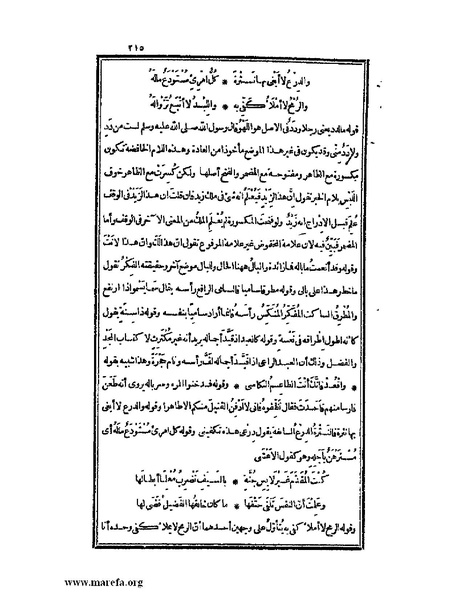 ٢١٥
والدرع لا أبغى بها نثرة * كل امرئ مستودع ماله
والرمح لا أملأ كفى به * واللبد لا أتبع تزواله
قوله مالددِ يعنى رجلا وددٌ فى الاصل هو اللهو قال رسول الله صلى الله عليه وسلم لست من ددٍ
ولا ددٌ منى وقد يكون فى غير هذا الموضع مأخوذا من العادة وهذه اللام الخافضة تكون
مكسورة مع الظاهر ومفتوحة مع المضمر والفتح أصلها ولكن كسرت مع الظاهر خوف
اللبس بلام الخبر تقول إن هذا لزيد فيعلم أنه شئ فى ملك زيد فان قلت ان هذا لزيد فى الوقف
علم قبل الادراج أنه زيد ولو فتحت المكسورة لم يعلم الملك من المعنى الآخر فى الوقف وأما
المضمر فبين فيه لان علامة المخفوض غير علامة المرفوع تقول ان هذا لك وان هذا لأنت
وقوله وقد أنعمت ما باله فما زائدة والبال ههنا الحال وللبال موضع آخر وحقيقته الفكر تقول
ما خطر هذا على بالى وقوله مطرقا ساميا فالسامى الرافع رأسه يقال سما يسمو اذا ارتفع
والمطرق الساكت المفكر المنكس رأسه فانما أراد ساميا بنفسه وقوله ذا سنة يقول
كأنه لطول اطراقه فى نعسة وقوله كالعبد اذ قيد أجماله يريد أنه غير مكترث لاكتساب المجد
والفضل وذلك أن العبد الراعى اذا قيد أجماله لف رأسه ونام حجرة وهذا شبيه بقوله
واقعد فانك أنت الطاعم الكاسى * وقوله فدخنوا المرء وسرباله يروى أنه طعن
فارسا منهم فأحدث فقال نظفوه فانى لا أدفن القتيل منكم الا طاهرا وقوله والدرع لا أبغى
بها نثرة فالنثرة الدرع السابغة يقول درعى هذه تكفينى وقوله كل امرئ مستودع ماله أى
مسترهن بأجله وهو كقول الاعشى
كنت المقدم غير لابس جنة * بالسيف تضرب معلما أبطالها
وعلمت أن النفس تلقى حتفها * ما كان خالقها الفضيل قضى لها
وقوله الرمح لا أملأ كفى به يتأول على وجهين أحدهما أن الرمح لا يملأ كفى وحده أنا
www.marefa.org